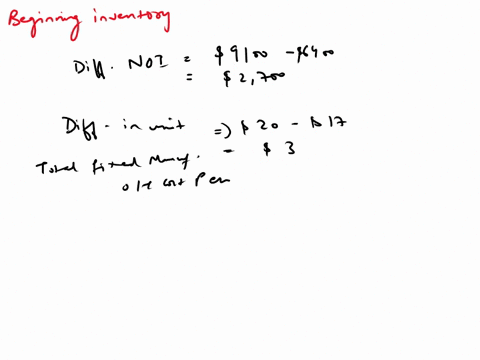 Beginning inventory
Diff. NOI = $9100 - $6400
= $2,700
Diff. in unit => $20 - $17
= $3
Total fixed Manf.
o/H cost Per